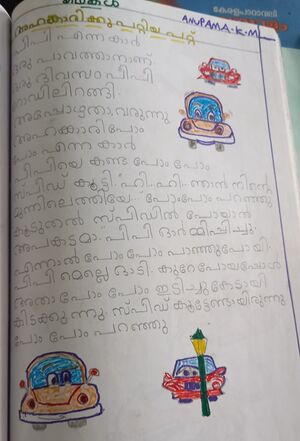 കഥകൾ
കേരളപാഠാവലി
ANUPAMA.K.M
അഹങ്കാരിക്കു പറ്റിയ പറ്റ്
പീപി എന്ന കാർ
ഒരു പാവത്താനാണ്.
ഒരു ദിവസം പീപി
റോഡിലിറങ്ങി.
അപ്പോഴതാ വരുന്നു
അഹങ്കാരി പോം
പോം എന്ന കാർ
പിപിയെ കണ്ട പോം പോം
സ്പീഡ് കൂട്ടി. "ഹി.. ഹി.. ഞാൻ നിന്റെ
മുന്നിലെത്തിയേ.." പോംപോം പറഞ്ഞു
"കൂടുതൽ സ്പീഡിൽ പോയാൽ
അപകടമാ." പീപി ഓർമ്മിപ്പിച്ചു.
എന്നാൽ പോം പോം പാഞ്ഞുപോയി.
പിപി മെല്ലെ ഓടി. കുറേ പോയപ്പോൾ
അതാ പോം പോം ഇടിച്ചുകേടായി
കിടക്കുന്നു. സ്പീഡ് കൂട്ടേണ്ടായിരുന്നു
പോം പോം പറഞ്ഞു